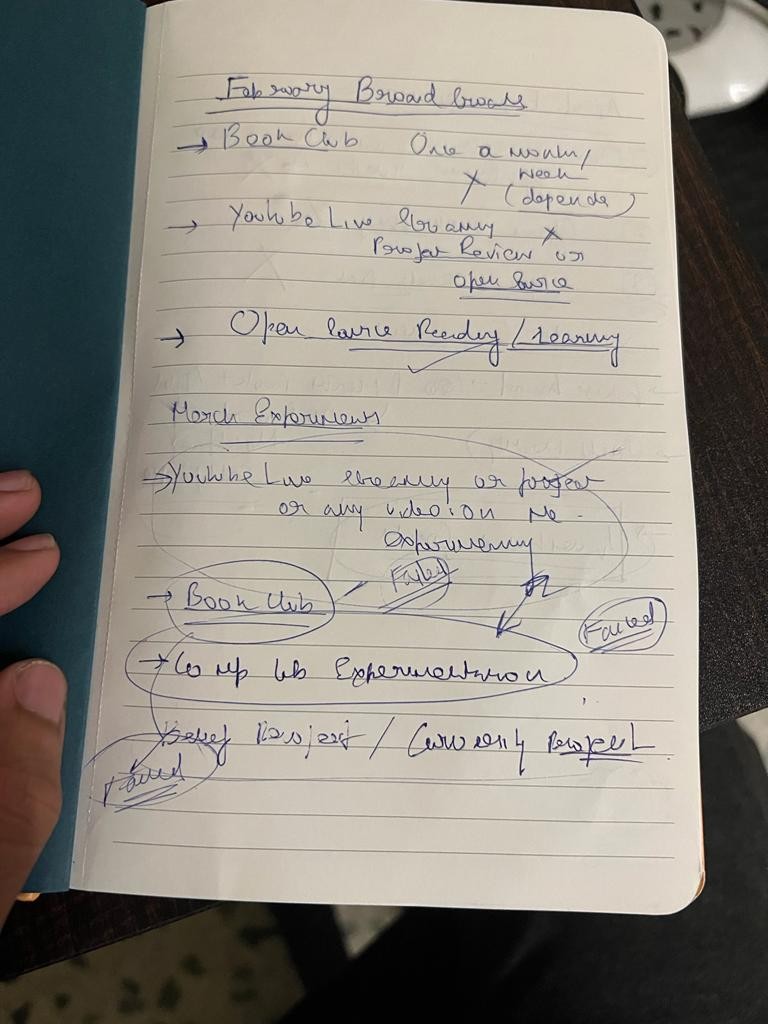 February Broad Goals
→ Book Club One a month/
X week
(depends)
→ Youtube Live Streaming X
Project Review or
open source
→ Open Source Reading / Learning
March Experiments
→ Youtube Live streaming or project
or any video on
experimenting
→ Book Club Failed
Failed
→ Experimentation
Project / Currently Project
Failed